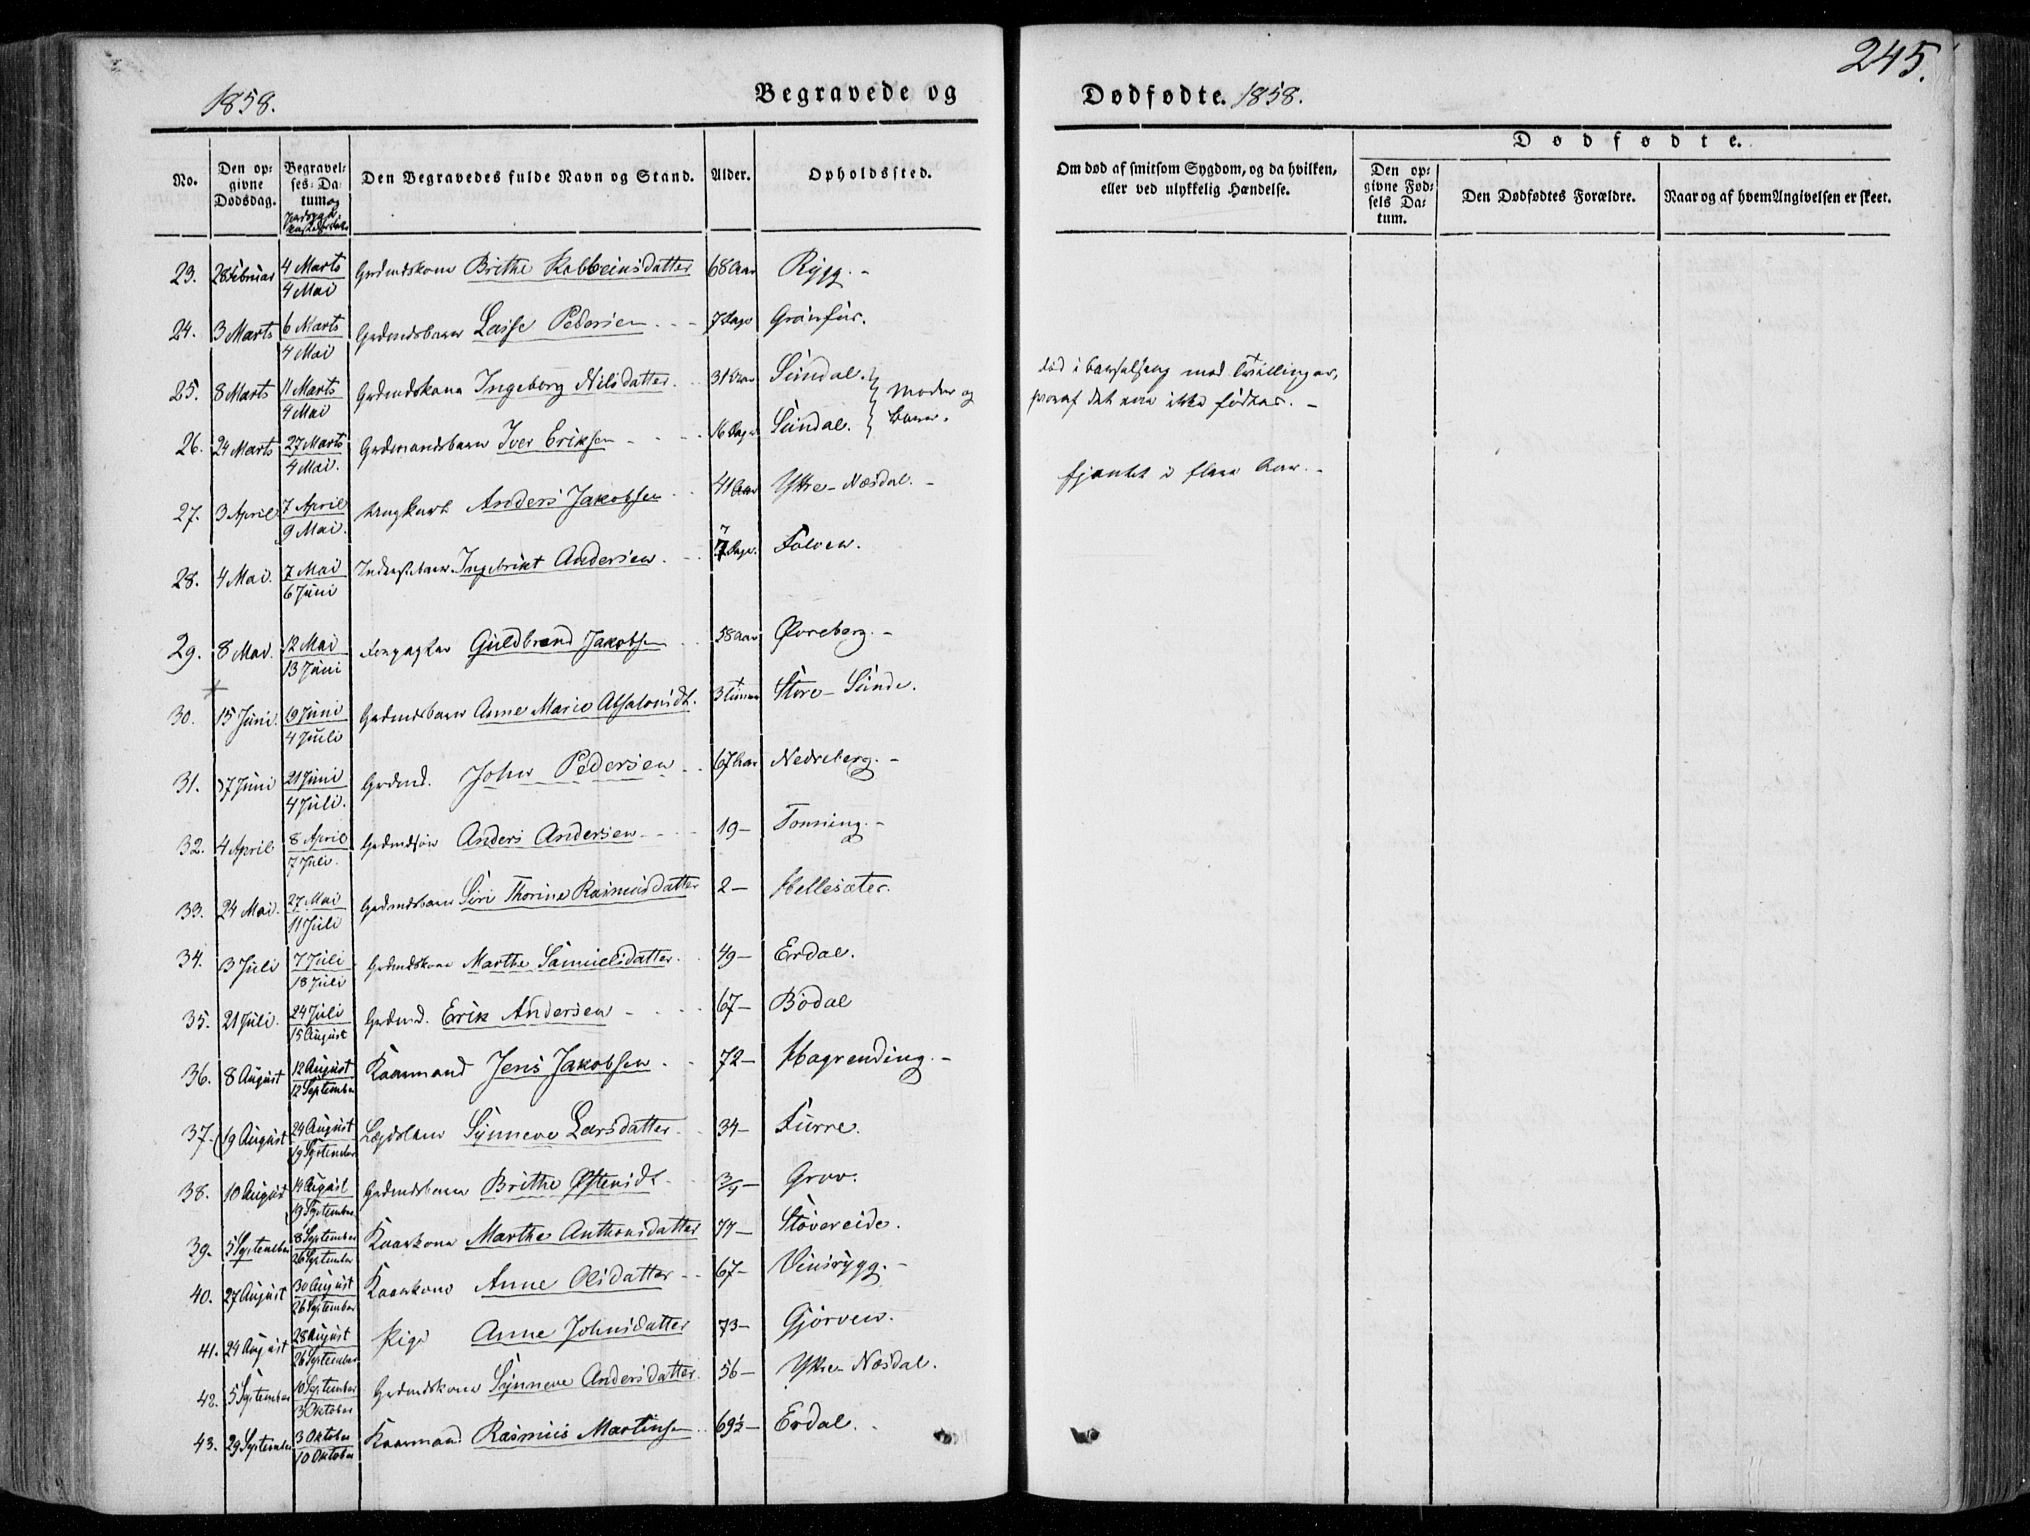 245.
1858. Begravede og Dødfødte. 1858.
Dødfødte.
No. Den opgivne Dødsdag. Begravelses-Datum og Den Begravedes fulde Navn og Stand. Alder. Opholdssted. Om død af smitsom Sygdom, og da hvilken, eller ved ulykkelig Hændelse. Den opgivne Fødsels Datum. Den Dødfødtes Forældre. Naar og af hvem Angivelsen er skeet.
23. 28 Februar 4 Marts 4 Mai Grdmdskone Brithe Kolbeinsdatter 68 Aar Rygg.
24. 3 Marts 6 Marts 4 Mai Grdmdsbarn Lasse Pedersen 7 Dage
25. 8 Marts 11 Marts 4 Mai Grdmdskone Ingeborg Nilsdatter 31 Aar Sundal. Moder og Barn. død i barselseng med Tvillinger, hvoraf det ene ikke fødtes.
26. 24 Marts 27 Marts 4 Mai. Grdmandsbarn Iver Eriksen 16 Dage Sundal.
27. 3 April 7 April 9 Mai. Ungkarl Anders Jakobsen 41 Aar Ytre-Næsdal. fjantet i flere Aar.
28. 4 Mai. 7 Mai 6 Juni Inderstebarn Ingebrikt Andersen. 7 Dage. Folven.
29. 8 Mai. 12 Mai 13 Juni Guldbrand Jakobsen 58 Aar Øvreberg.
30. 15 Juni 19 Juni 4 Juli Grdmdsbarn Anne Marie Absalonsdt. 3 Timer Store-Sunde.
31. 17 Juni 21 Juni 4 Juli. Grdmd. John Pedersen 67 Aar Nedreberg.
32. 4 April 8 April 7 Juli. Grdmdsøn Anders Andersen 19 - Tonning.
33. 24 Mai. 27 Mai 11 Juli Grdmdsbarn Siri Thorine Rasmusdatter 2 - Hellesæter.
34. 3 Juli 7 Juli 18 Juli Grdmdskone Marthe Samuelsdatter. 49 - Erdal.
35. 21 Juli. 24 Juli 15 August Grdmd. Erik Andersen 67 - Bødal
36. 8 August 12 August 12 September Kaarmand Jens Jakobsen 72 - Hogrending.
37. 19 August 24 August 19 September Lægdslem Synneve Larsdatter 34 - Furre.
38. 10 August 14 August 19 September Grdmdsbarn Brithe Østensdt. 3/4 - Grov.
39. 5 September 8 September 26 September Kaarkone Marthe Anthonsdatter 77 - Støvereide.
40. 27 August 30 August 26 September Kaarkone Anne Olsdatter 67 - Vinsrygg.
41. 24 August 28 August 26 September Pige Anne Johnsdatter 73 - Gjørven.
42. 5 September 10 September 3 Oktober Grdmdskone Synneve Andersdatter 56 - Ytre-Næsdal.
43. 29 September 3 Oktober 10 Oktober Kaarmand Rasmus Martinsen 69½ - Erdal.